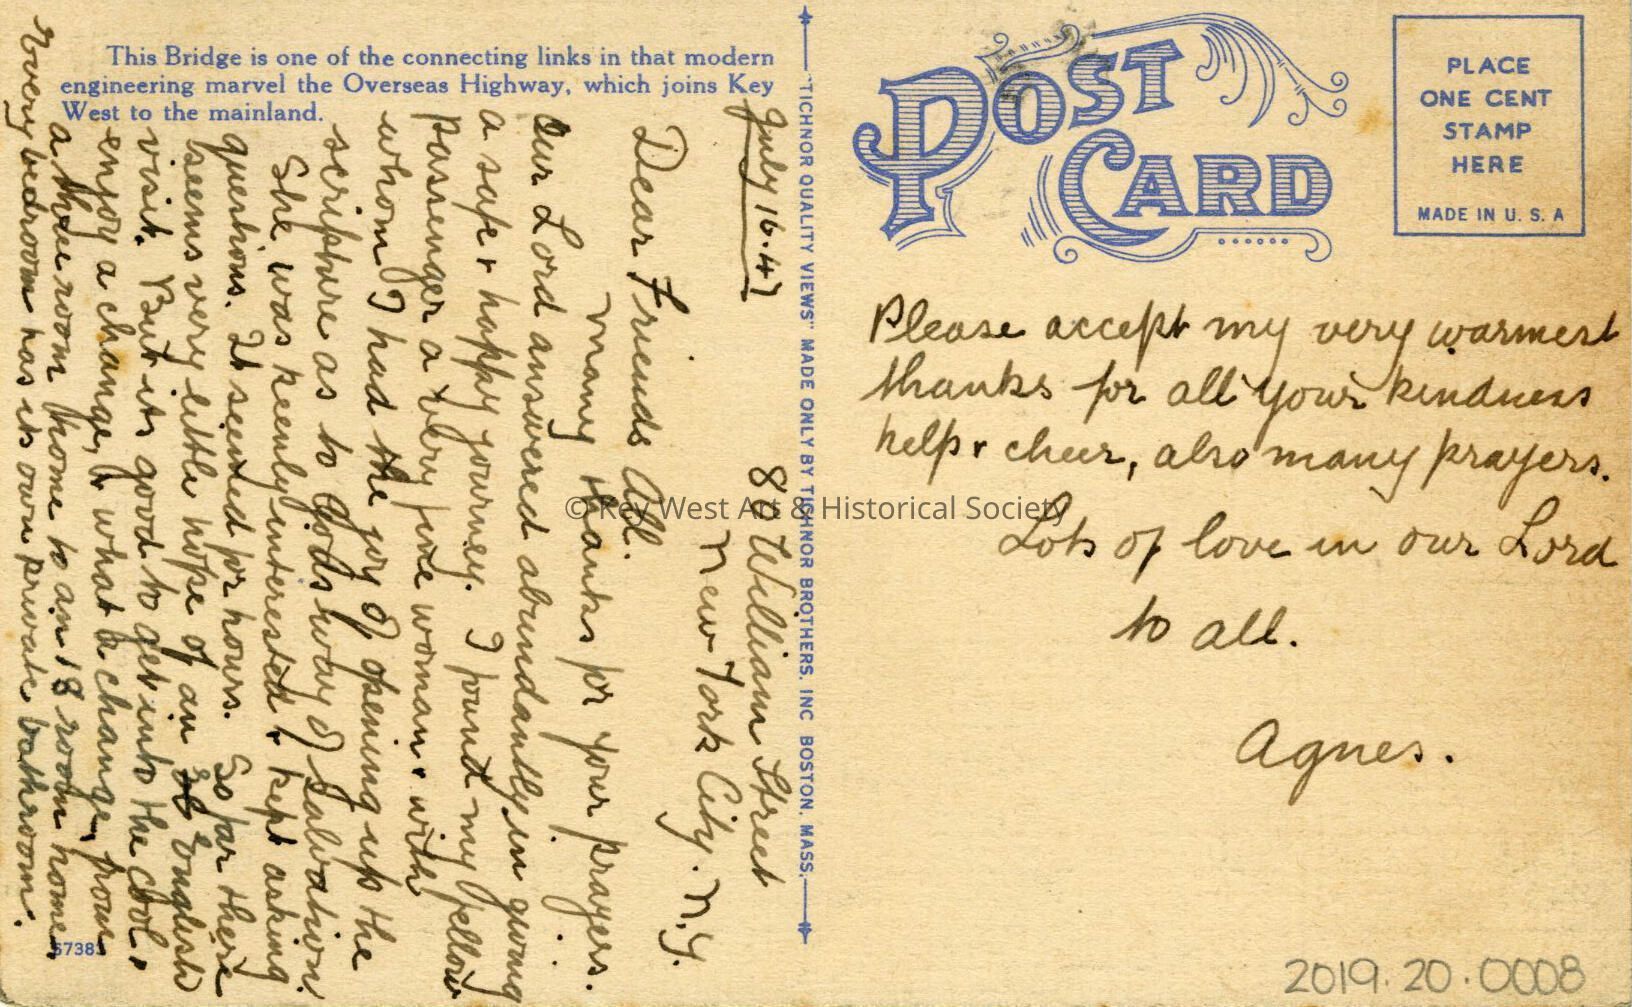 This Bridge is one of the connecting links in that modern
engineering marvel the Overseas Highway, which joins Key
West to the mainland.
80 William Street
New York City. N.Y.
July 16.47
Dear Friends All.
Many thanks for your prayers.
Our Lord answered abundantly in giving
a safe & happy journey. I found my fellow
passenger a very fine woman & with
whom I had the joy of opening up the
scripture as to Gods way of Salvation.
She was keenly interested & kept asking
questions. It seemed for hours. So far there
seems very little hope of an English
visit. But its good to get into the cool &
enjoy a change, & what a change, from
a three room home to an 18 room home.
Every bedroom has its own private bathroom.
67385
"TICHNOR QUALITY VIEWS" MADE ONLY BY TICHNOR BROTHERS. INC BOSTON. MASS.
POST
CARD
PLACE
ONE CENT
STAMP
HERE
MADE IN U. S. A
Please accept my very warmest
thanks for all your kindness
help & cheer, also many prayers.
Lots of love in our Lord
to all.
Agnes.
© Key West Art & Historical Society
2019.20.0008